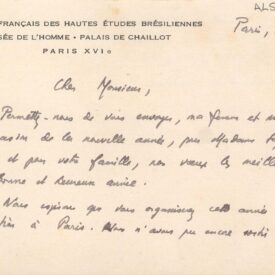 ALS
FRANÇAIS DES HAUTES ÉTUDES BRÉSILIENNES
SÉE DE L'HOMME - PALAIS DE CHAILLOT
PARIS XVIe
Paris,
Cher Monsieur,
Permettez-nous de vous envoyer, ma femme et
de la nouvelle année, pour Madame
et pour votre famille, nos vœux les meill
bonne et heureuse année.
Nous espérons que vous organiserez cette année
à Paris. Nous n'avons pu encore